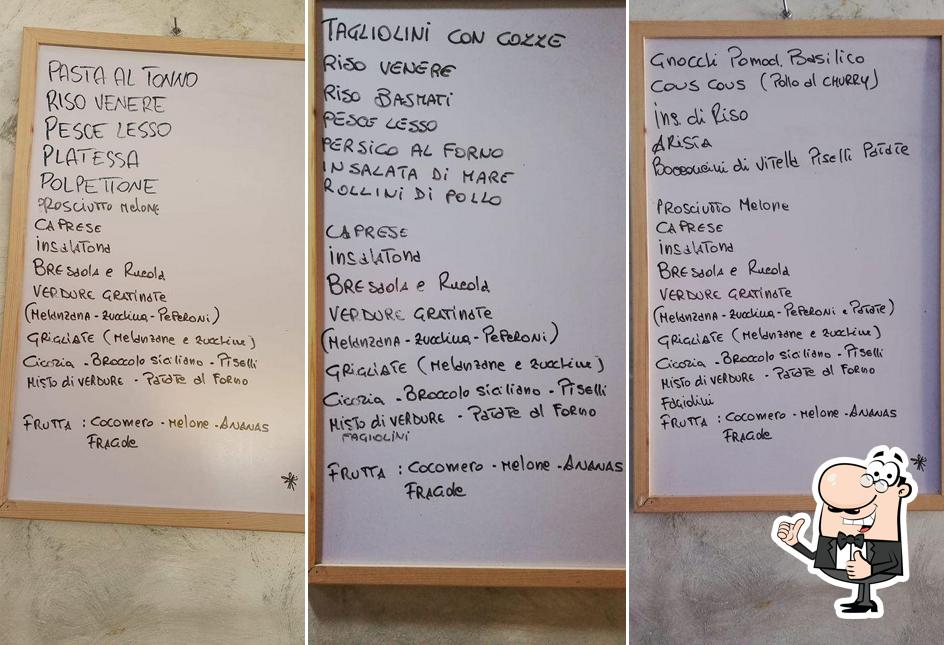 PASTA AL TONNO
RISO VENERE
PESCE LESSO
PLATESSA
POLPETTONE
PROSCIUTTO MELONE
CAPRESE
INSALATONA
BRESAOLA e Rucola
VERDURE GRATINATE
(Melanzana - zucchina - PEPERONI)
GRIGLIATE (Melanzane e zucchine)
Cicoria - Broccolo siciliano - Piselli
MISTO di VERDURE - PATATE al FORNO
FRUTTA : Cocomero - Melone - ANANAS
FRAGole
TAGLIOLINI CON COZZE
RISO VENERE
RISO BASMATI
PESCE LESSO
PERSICO AL FORNO
INSALATA DI MARE
ROLLINI DI POLLO
CAPRESE
INSALATONA
BRESAOLA e Rucola
VERDURE GRATINATE
(Melanzana - zucchina - PEPERONI)
GRIGLIATE (Melanzane e zucchine)
Cicoria - Broccolo siciliano - Piselli
MISTO di VERDURE - PATATE al FORNO
FAGIOLINI
FRUTTA : Cocomero - Melone - ANANAS
FRAGole
Gnocchi Pomod. Basilico
COUS COUS (Pollo al CHURRY)
Ins. di Riso
ARISTA
Bocconcini di vitella Piselli Patate
PROSCIUTTO Melone
CAPRESE
INSALATONA
BRESAOLA e Rucola
VERDURE GRATINATE
(Melanzana - zucchina - PEPERONI e PATATE)
GRIGLIATE (Melanzane e zucchine)
Cicoria - Broccolo siciliano - Piselli
MISTO di VERDURE - PATATE al FORNO
Fagiolini
FRUTTA : Cocomero - Melone - ANANAS
FRAGole